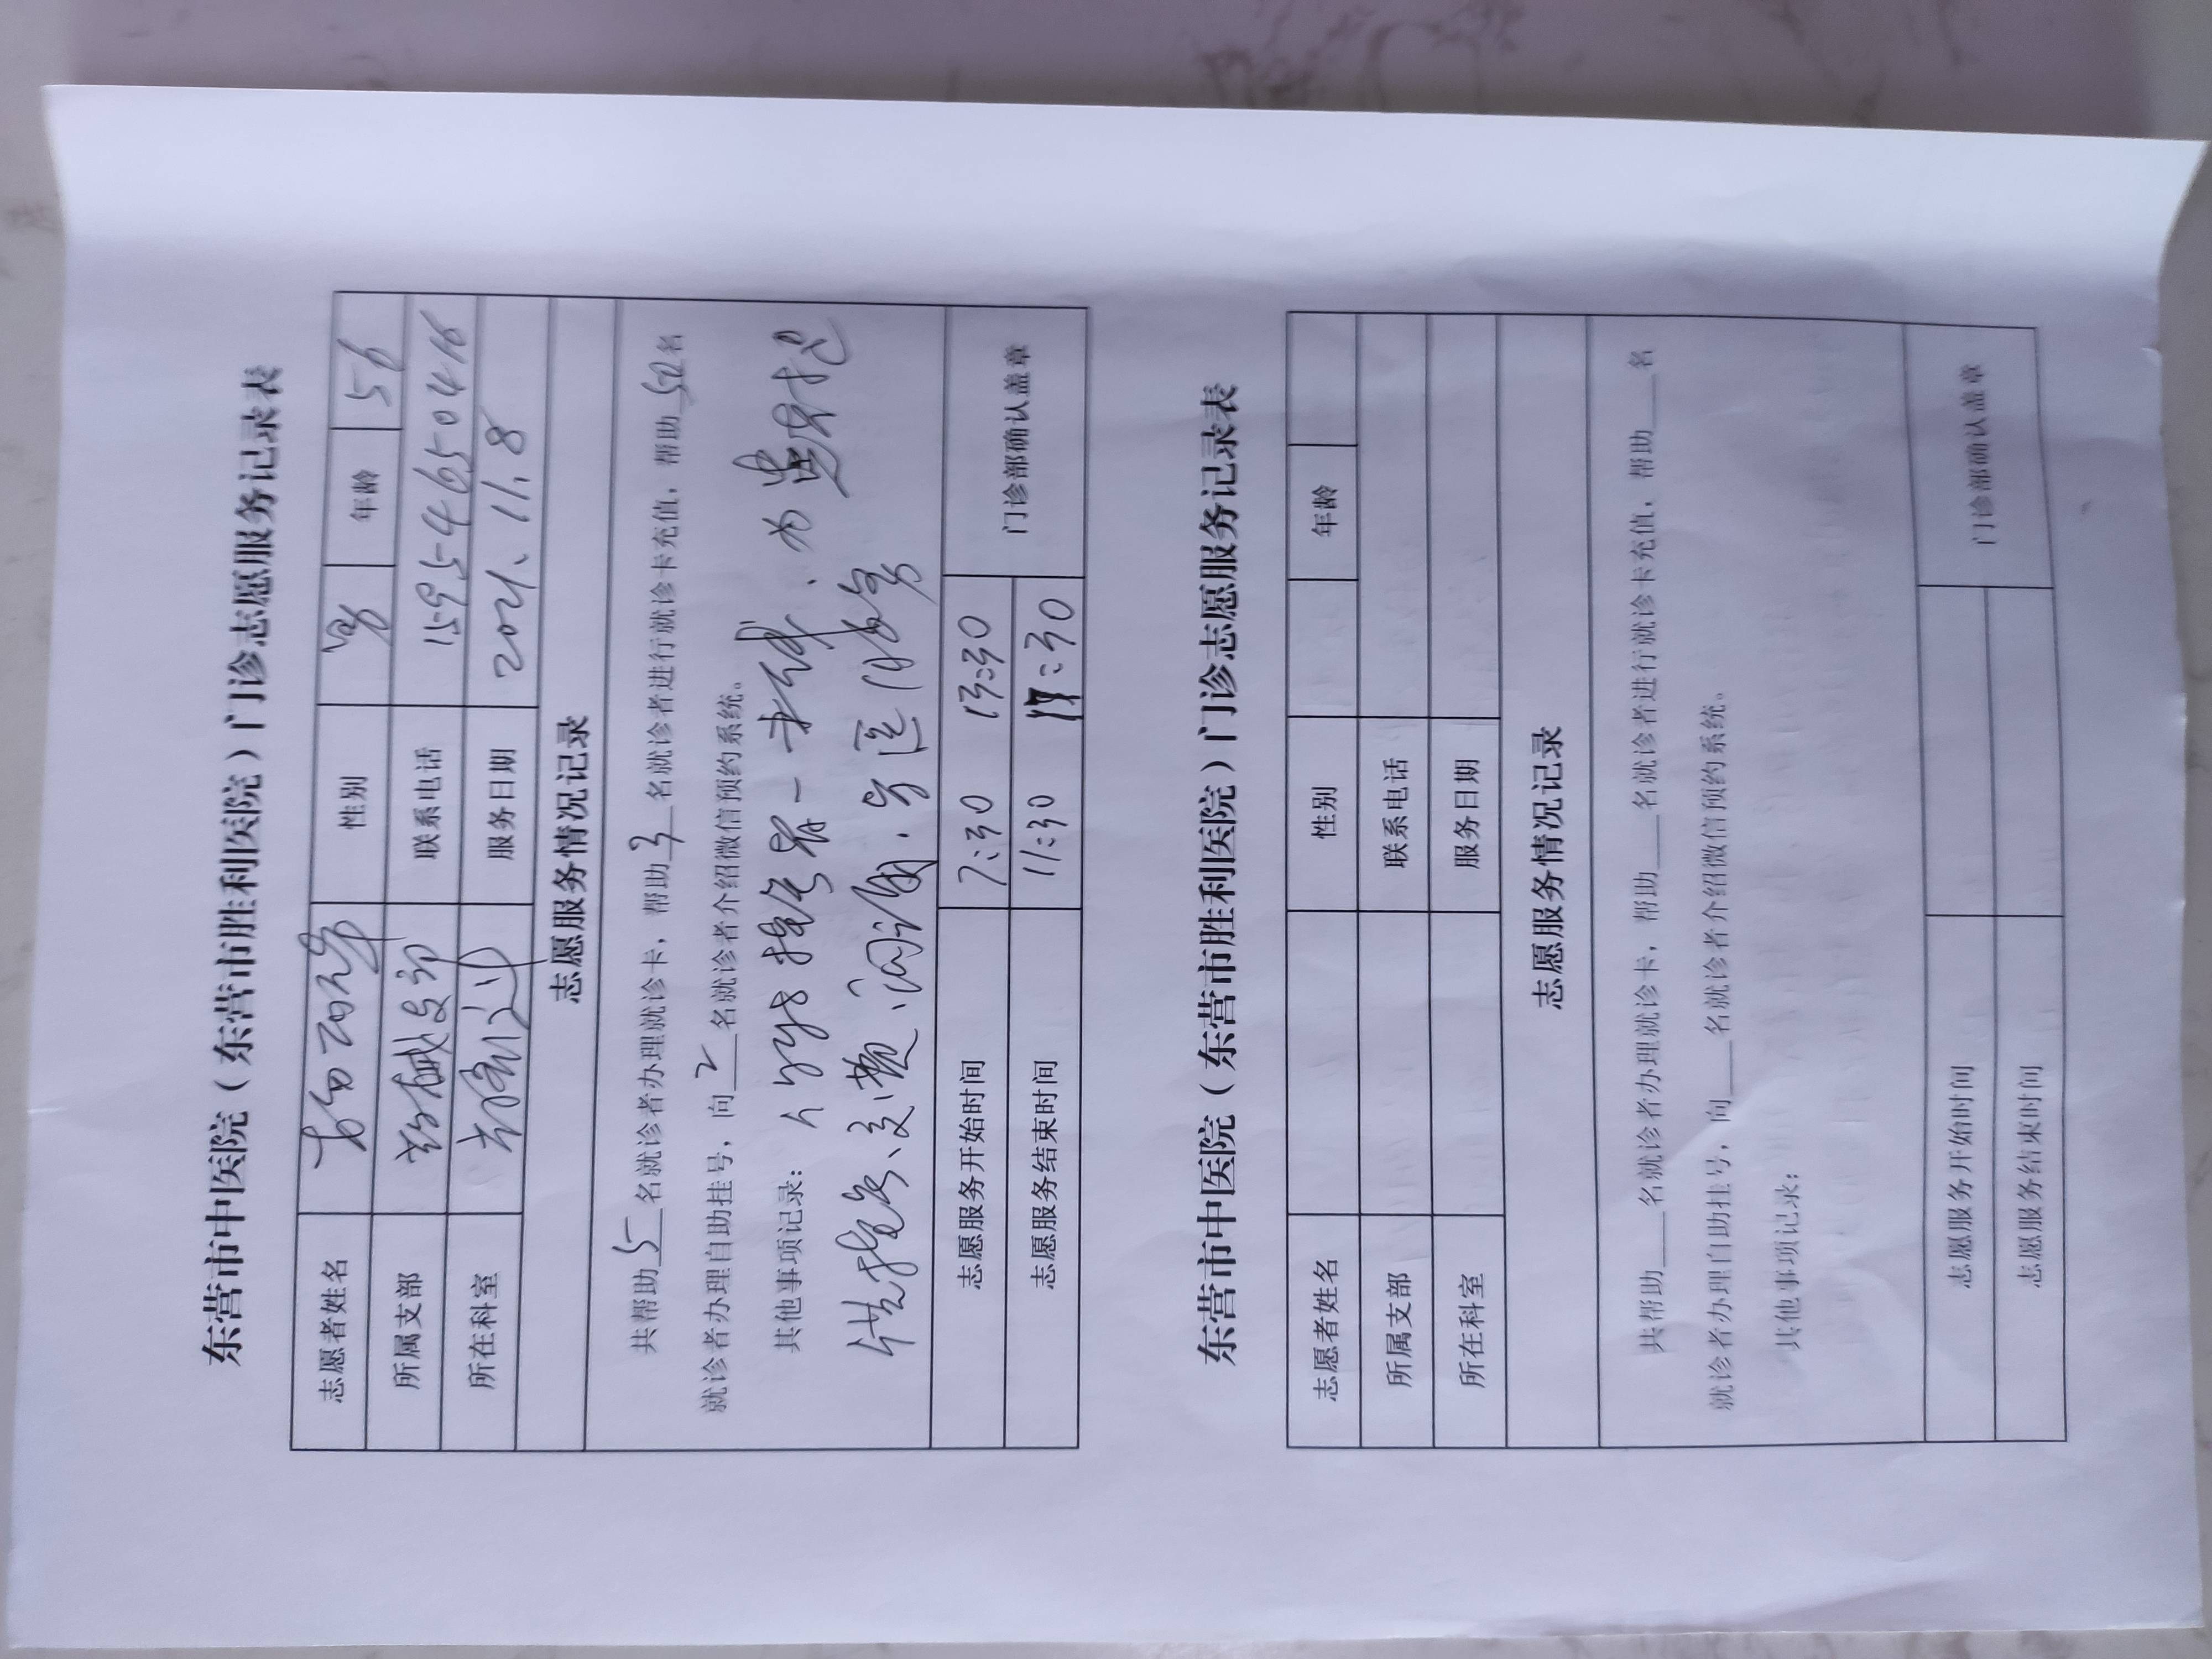 东营市中医院（东营市胜利医院）门诊志愿服务记录表
志愿者姓名 性别 男 年龄 56
所属支部 支部 联系电话 15954650416
所在科室 服务日期 2021.11.8
志愿服务情况记录
共帮助5名就诊者办理就诊卡，帮助3名就诊者进行就诊卡充值，帮助50名
就诊者办理自助挂号，向2名就诊者介绍微信预约系统。
其他事项记录：
志愿服务开始时间 7:30 13:30 门诊部确认盖章
志愿服务结束时间 11:30 17:30
东营市中医院（东营市胜利医院）门诊志愿服务记录表
志愿者姓名 性别 年龄
所属支部 联系电话
所在科室 服务日期
志愿服务情况记录
共帮助___名就诊者办理就诊卡，帮助___名就诊者进行就诊卡充值，帮助___名
就诊者办理自助挂号，向___名就诊者介绍微信预约系统。
其他事项记录：
志愿服务开始时间 门诊部确认盖章
志愿服务结束时间